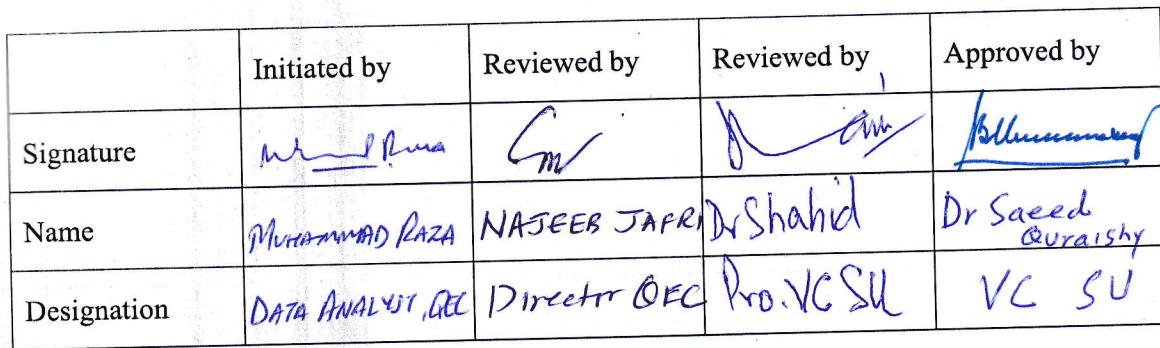 Initiated by Reviewed by Reviewed by Approved by
Signature
Name MUHAMMAD RAZA NAJEEB JAFRI Dr Shahid Dr Saeed
Quraishy
Designation DATA ANALYST, QEC Director QEC Pro.VC SU VC SU